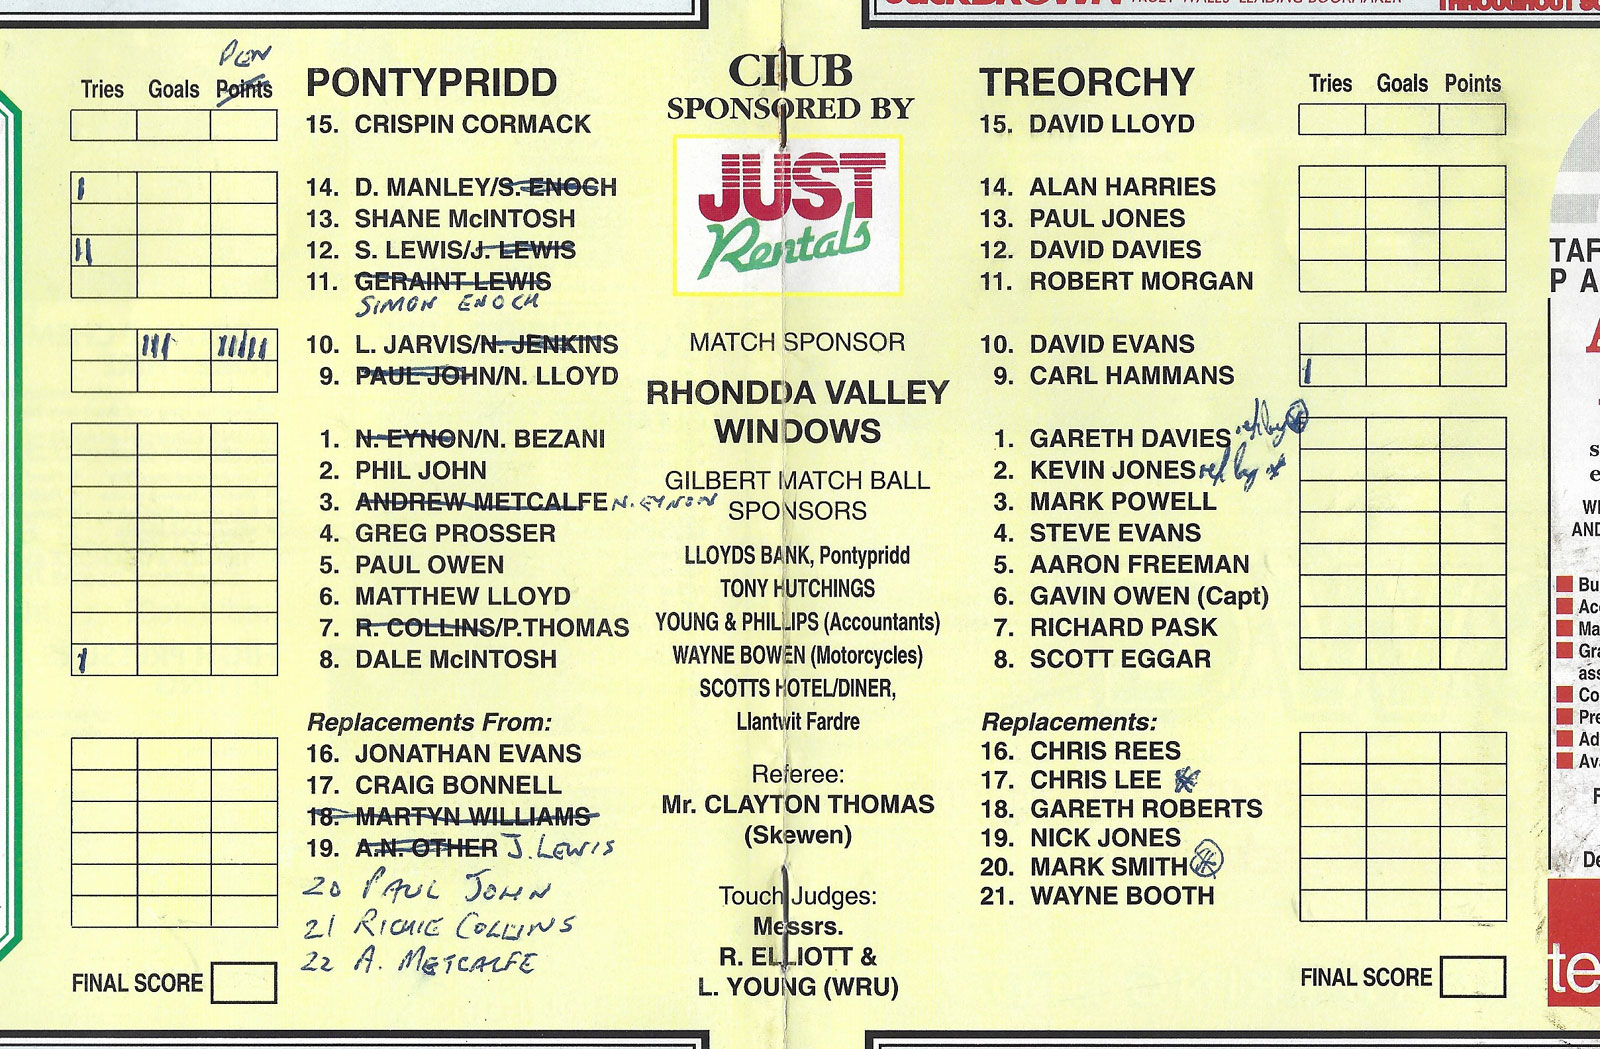 JackBROWN TROEY WALES' LEADING BOOKMAKER THROUGHOUT
PEN
Tries Goals Points
PONTYPRIDD
15. CRISPIN CORMACK
14. D. MANLEY/S. ENOCH
13. SHANE McINTOSH
12. S. LEWIS/J. LEWIS
11. GERAINT LEWIS
SIMON ENOCH
10. L. JARVIS/N. JENKINS
9. PAUL JOHN/N. LLOYD
1. N. EYNON/N. BEZANI
2. PHIL JOHN
3. ANDREW METCALFE N. EYNON
4. GREG PROSSER
5. PAUL OWEN
6. MATTHEW LLOYD
7. R. COLLINS/P.THOMAS
8. DALE McINTOSH
Replacements From:
16. JONATHAN EVANS
17. CRAIG BONNELL
18. MARTYN WILLIAMS
19. A.N. OTHER J. LEWIS
20 PAUL JOHN
21 RICHIE COLLINS
22 A. METCALFE
FINAL SCORE
CLUB
SPONSORED BY
JUST
Rentals
MATCH SPONSOR
RHONDDA VALLEY
WINDOWS
GILBERT MATCH BALL
SPONSORS
LLOYDS BANK, Pontypridd
TONY HUTCHINGS
YOUNG & PHILLIPS (Accountants)
WAYNE BOWEN (Motorcycles)
SCOTTS HOTEL/DINER,
Llantwit Fardre
Referee:
Mr. CLAYTON THOMAS
(Skewen)
Touch Judges:
Messrs.
R. ELLIOTT &
L. YOUNG (WRU)
TREORCHY
Tries Goals Points
15. DAVID LLOYD
14. ALAN HARRIES
13. PAUL JONES
12. DAVID DAVIES
11. ROBERT MORGAN
10. DAVID EVANS
9. CARL HAMMANS
1. GARETH DAVIES rep by
2. KEVIN JONES rep by *
3. MARK POWELL
4. STEVE EVANS
5. AARON FREEMAN
6. GAVIN OWEN (Capt)
7. RICHARD PASK
8. SCOTT EGGAR
Replacements:
16. CHRIS REES
17. CHRIS LEE *
18. GARETH ROBERTS
19. NICK JONES
20. MARK SMITH
21. WAYNE BOOTH
FINAL SCORE
TAF
PA
AND
Bu
Ac
Ma
Gra
ass
Co
Pre
Ad
Ava
De
te